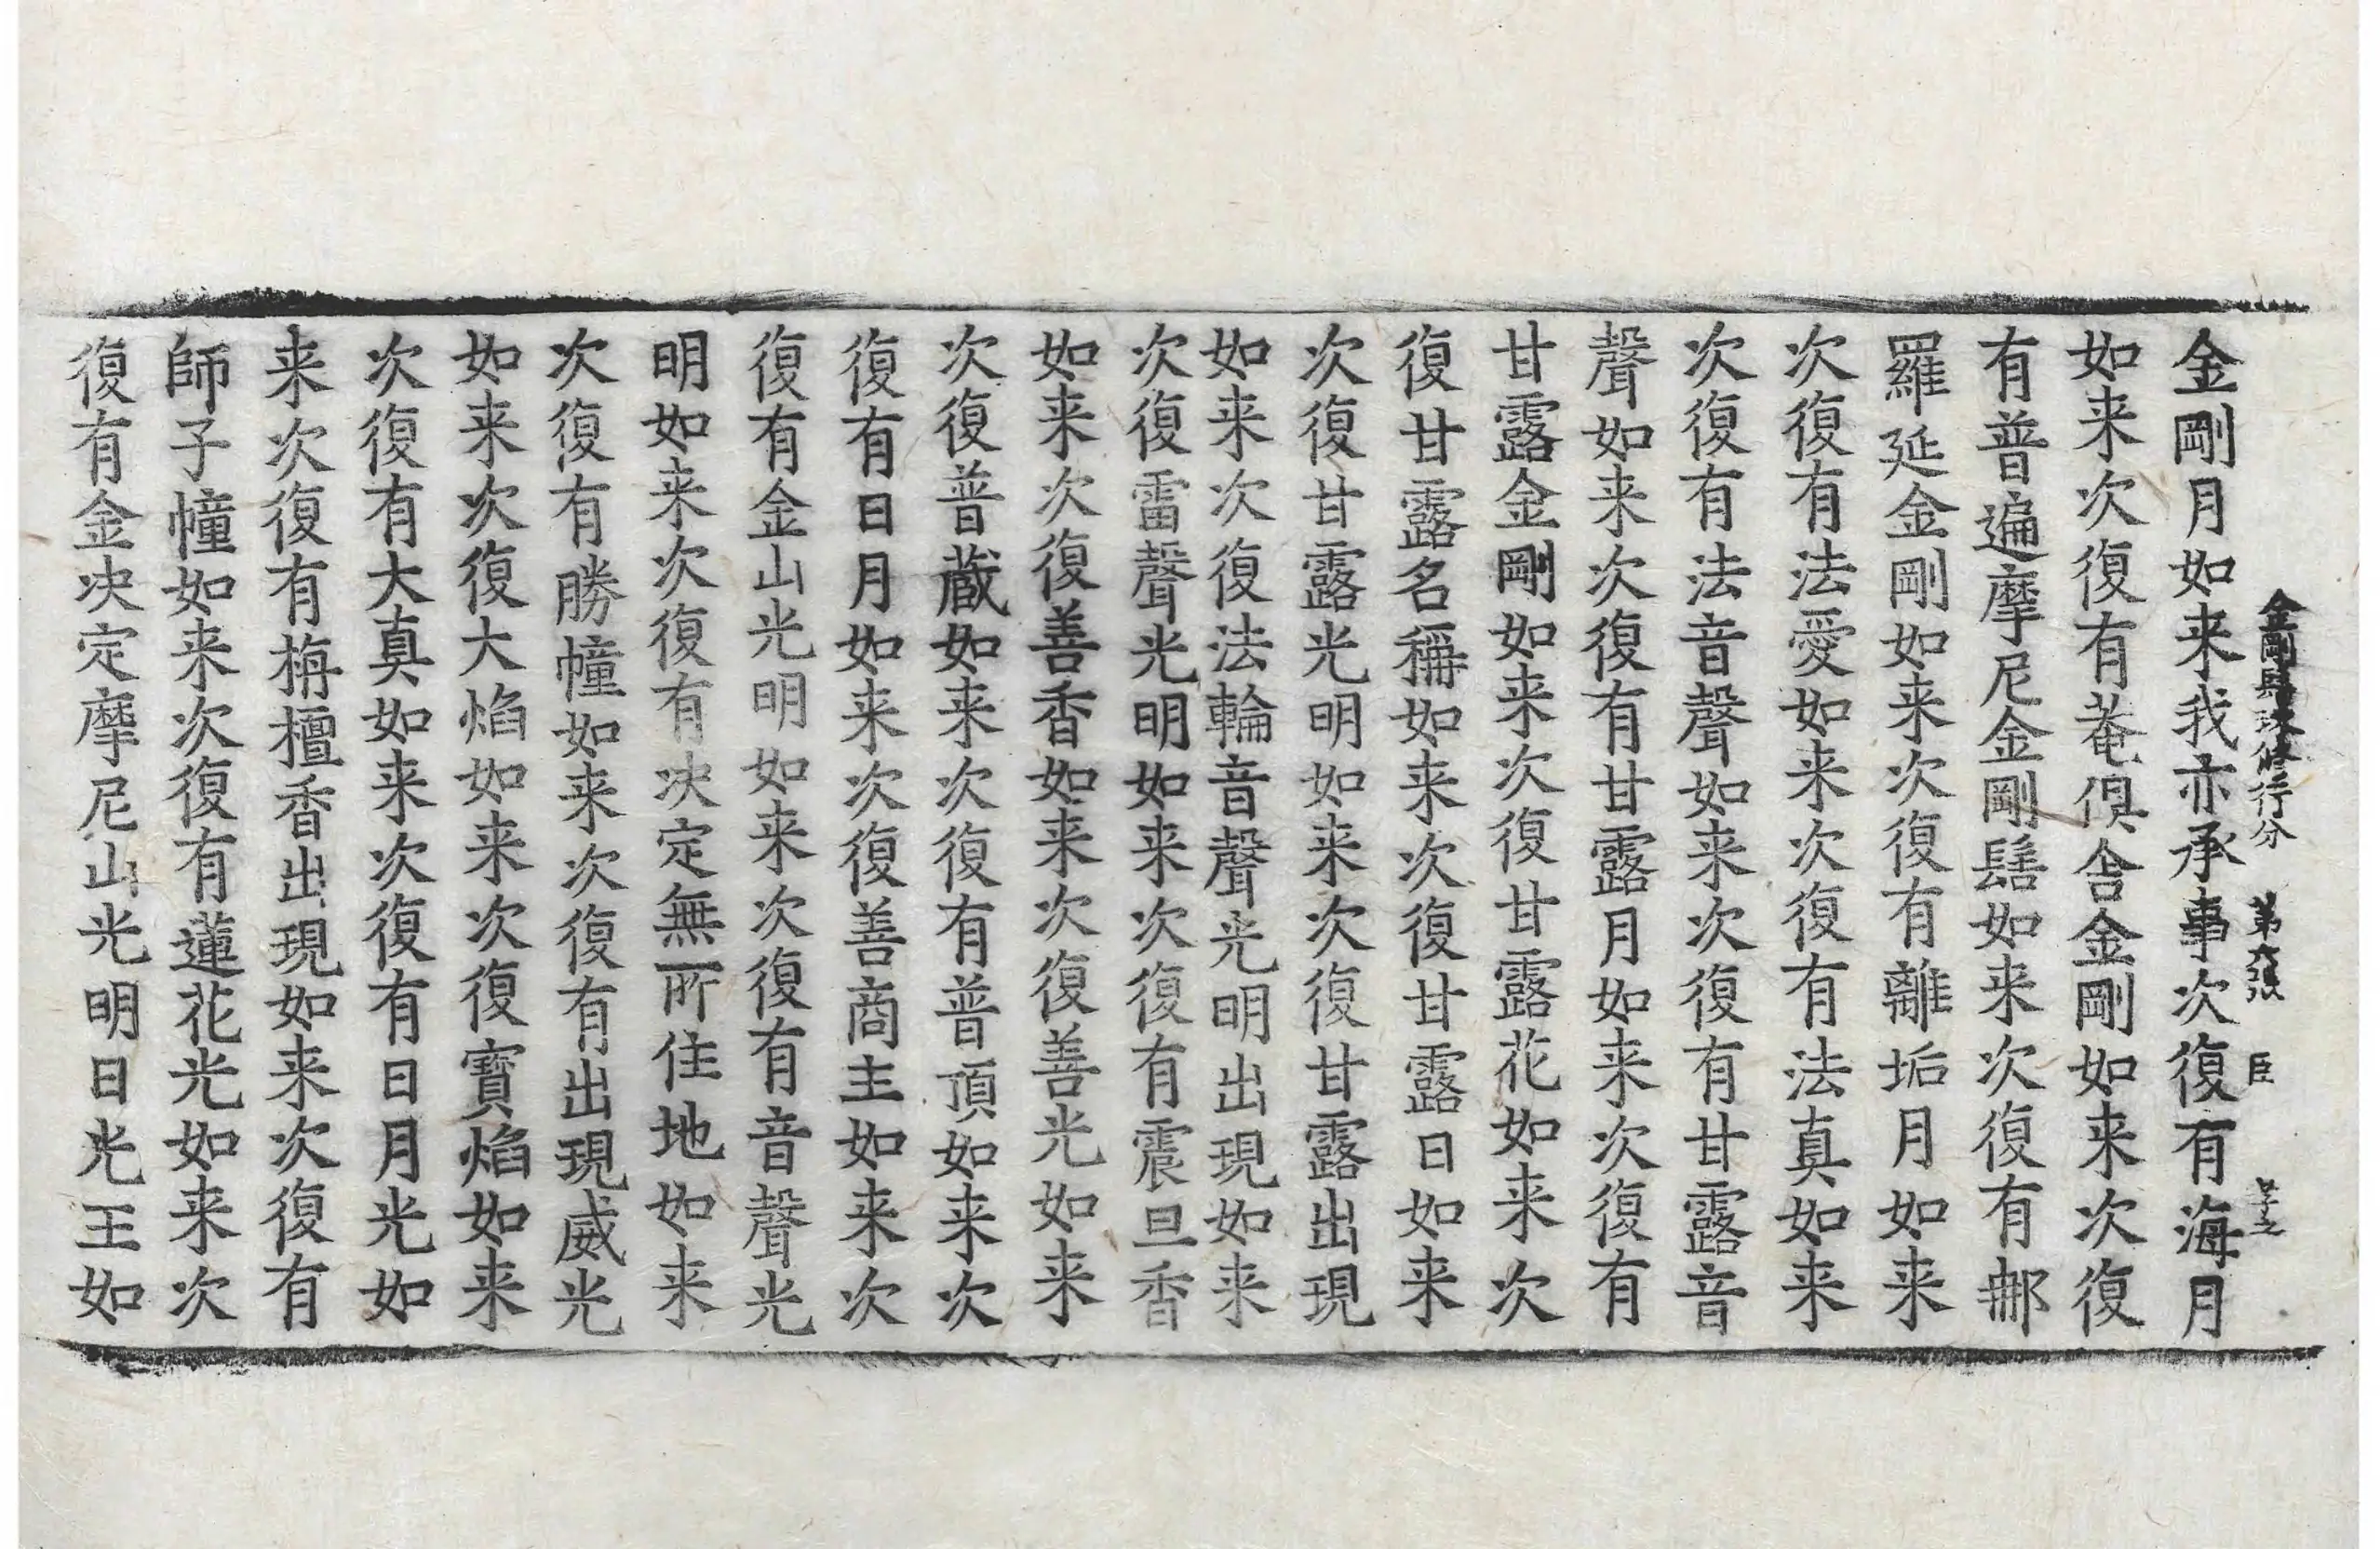 金剛髻珠修行分 第六張 臣
金剛月如来我亦承事次復有海月
如来次復有菴俱舍金剛如来次復
有普遍摩尼金剛髻如来次復有𨚗
羅延金剛如来次復有離垢月如来
次復有法愛如来次復有法真如来
次復有法音聲如来次復有甘露音
聲如来次復有甘露月如来次復有
甘露金剛如来次復甘露花如来次
復甘露名稱如来次復甘露日如来
次復甘露光明如来次復甘露出現
如来次復法輪音聲光明出現如来
次復雷聲光明如来次復有震旦香
如来次復善香如来次復善光如来
次復普蔵如来次復有普頂如来次
復有日月如来次復善商主如来次
復有金山光明如来次復有音聲光
明如来次復有决定無所住地如来
次復有勝幢如来次復有出現威光
如来次復大焰如来次復寶焰如来
次復有大真如来次復有日月光如
来次復有栴檀香出現如来次復有
師子幢如来次復有蓮花光如来次
復有金决定摩尼山光明日光王如